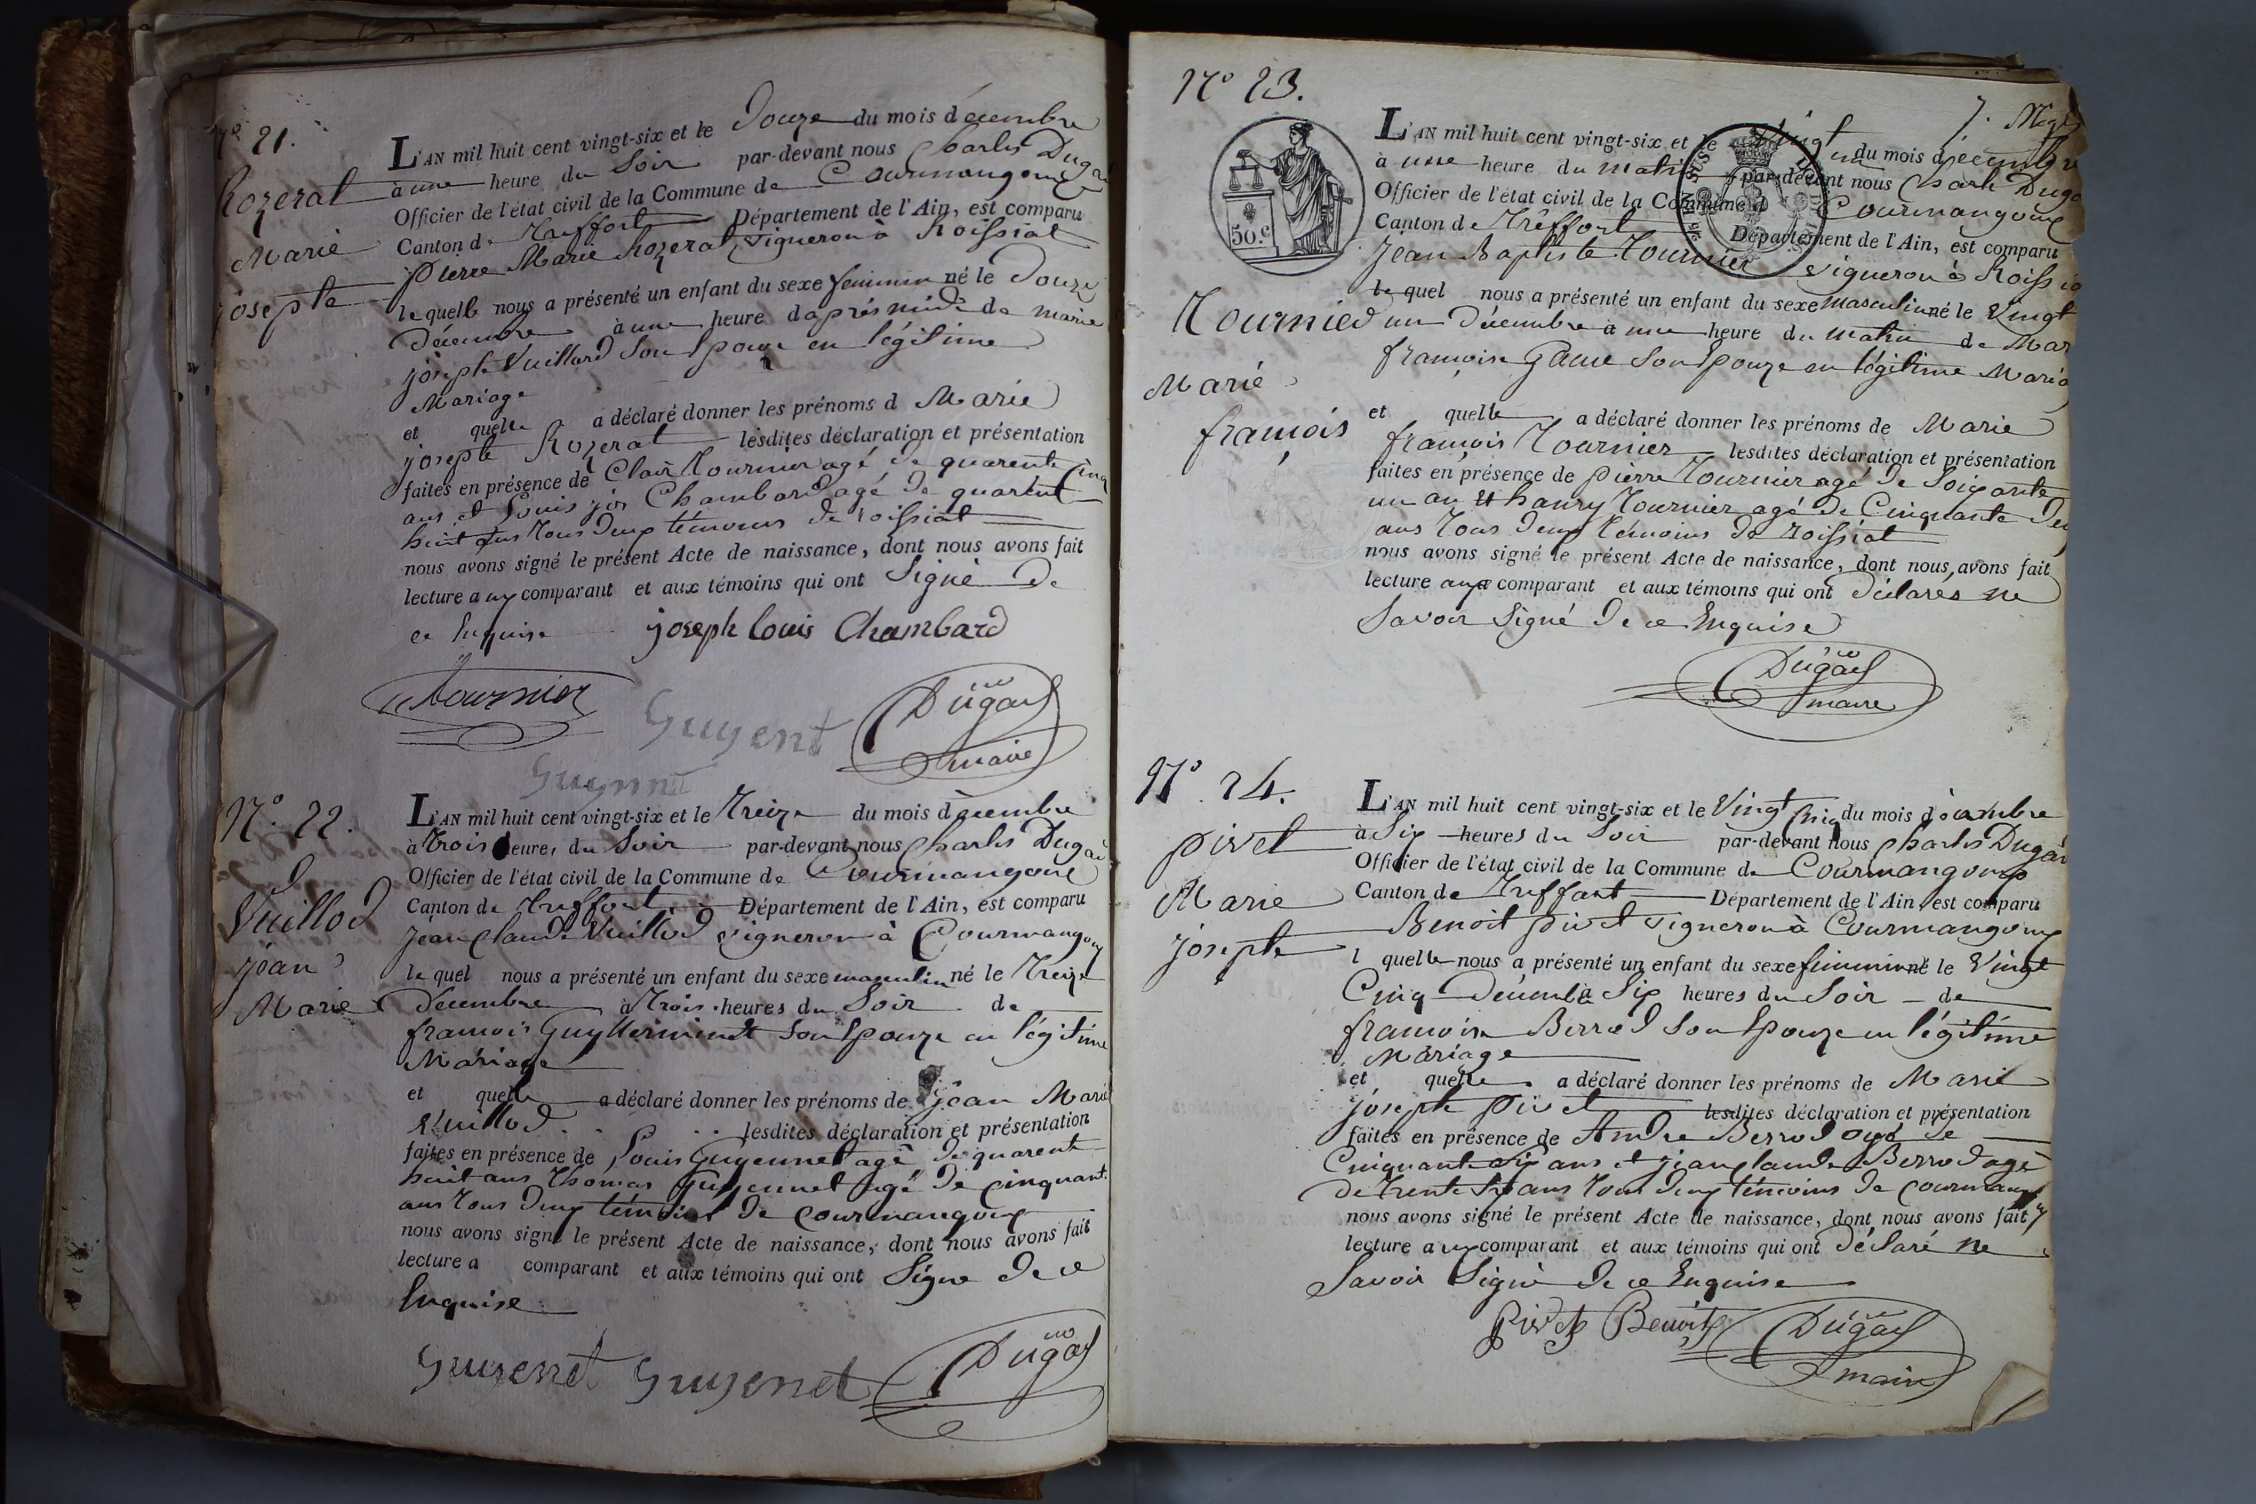 N° 21.
Rozerat
Marie
josephte
L'AN mil huit cent vingt-six et le Douze du mois décembre
à une heure du Soir par-devant nous Charles Dugas
Officier de l'état civil de la Commune de Courmangoux
Canton de Treffort Département de l'Ain, est comparu
pierre Marie Rozerat, vigneron à Roissiat
lequelle nous a présenté un enfant du sexe feminin né le Douze
décembre à une heure daprés midi de marie
josephte Vuillard son Epouze en légitime
Mariage
et quelle a déclaré donner les prénoms d Marie
josephte Rozerat lesdites déclaration et présentation
faites en présence de Clair Tournier agé de quarente Cinq
ans et Louis jos Chambard agé de quarent
huit ans Tous deux témoins de roissiat
nous avons signé le présent Acte de naissance, dont nous avons fait
lecture a ux comparant et aux témoins qui ont Signé De
ce Enquise joseph louis Chambard
Tournier Guyent Dugas
maire
Guyennt
N° 22.
Vuillod
jéan
Marie
L'AN mil huit cent vingt-six et le Treize du mois décembre
à Trois heures du Soir par-devant nous Charles Dugas
Officier de l'état civil de la Commune de Courmangoux
Canton de Treffort Département de l'Ain, est comparu
jéan claude Vuillod vigneron à Courmangoux
le quel nous a présenté un enfant du sexe masculin né le Treize
décembre à Trois heures du Soir de
francois son Epouze en légitime
Mariage
et quelle a déclaré donner les prénoms de jéan Marie
Vuillod lesdites déclaration et présentation
faites en présence de Louis Guyennet agé de quarent
huit ans Thomas Guyennet agé de cinquant
ans Tous deux témoins de courmangoux
nous avons signé le présent Acte de naissance, dont nous avons fait
lecture a comparant et aux témoins qui ont Signe De ce
Enquise
Guyennet Guyenet Dugas
N° 23.
50.c
Tournier
Marie
françois
L'AN mil huit cent vingt-six et le Vingt un du mois décembre
à une heure du matin par-devant nous Charle Dugas
Officier de l'état civil de la Commune d Courmangoux
Canton de Tréffort Département de l'Ain, est comparu
jéan Baptiste Tournier vigneron à Roissia
le quel nous a présenté un enfant du sexe masculin né le Vingt
un Décembre à une heure du matin de Mar
françoise Gaue son Epouze en légitime Maria
et quelle a déclaré donner les prénoms de Marie
françois Tournier lesdites déclaration et présentation
faites en présence de pierre Tournier agé de Soixante
un an et hanry Tournier agé De Cinquante Deux
ans Tous deux témoins De roissiat
nous avons signé le présent Acte de naissance, dont nous avons fait
lecture aux comparant et aux témoins qui ont Déclarés ne
Savoir Signé De ce Enquise
Dugas
maire
N° 24.
pivet
Marie
josephte
L'AN mil huit cent vingt-six et le Vingt Cinq du mois décembre
à Six heures du Soir par-devant nous Charles Dugas
Officier de l'état civil de la Commune de Courmangoux
Canton de Treffort Département de l'Ain, est comparu
Benoit pivet vigneron à Courmangoux
l quelle nous a présenté un enfant du sexe feminin né le Vingt
Cinq Décemb à Six heures du Soir de
francoise Berrod son Epouze en légitime
Mariage
et quelle a déclaré donner les prénoms de Marie
josephte pivet lesdites déclaration et présentation
faites en présence de Andre Berrod agé de
Cinquante Six ans et jéan claude Berrod agé
De Trente Six ans Tous deux témoins de Courmangoux
nous avons signé le présent Acte de naissance, dont nous avons fait
lecture a ux comparant et aux témoins qui ont Déclaré ne
Savoir Signé De ce Enquise
Pivet Benoit Dugas
maire